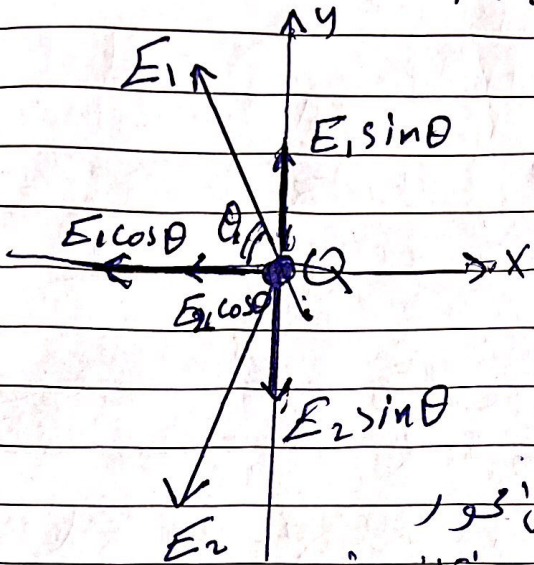 y
E₁
E₁sinθ
E₁cosθ
θ
Q
x
E₂cosθ
E₂sinθ
E₂